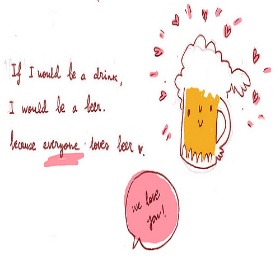 If I would be a drink,
I would be a beer.
because everyone loves beer ♥.
we love
you!